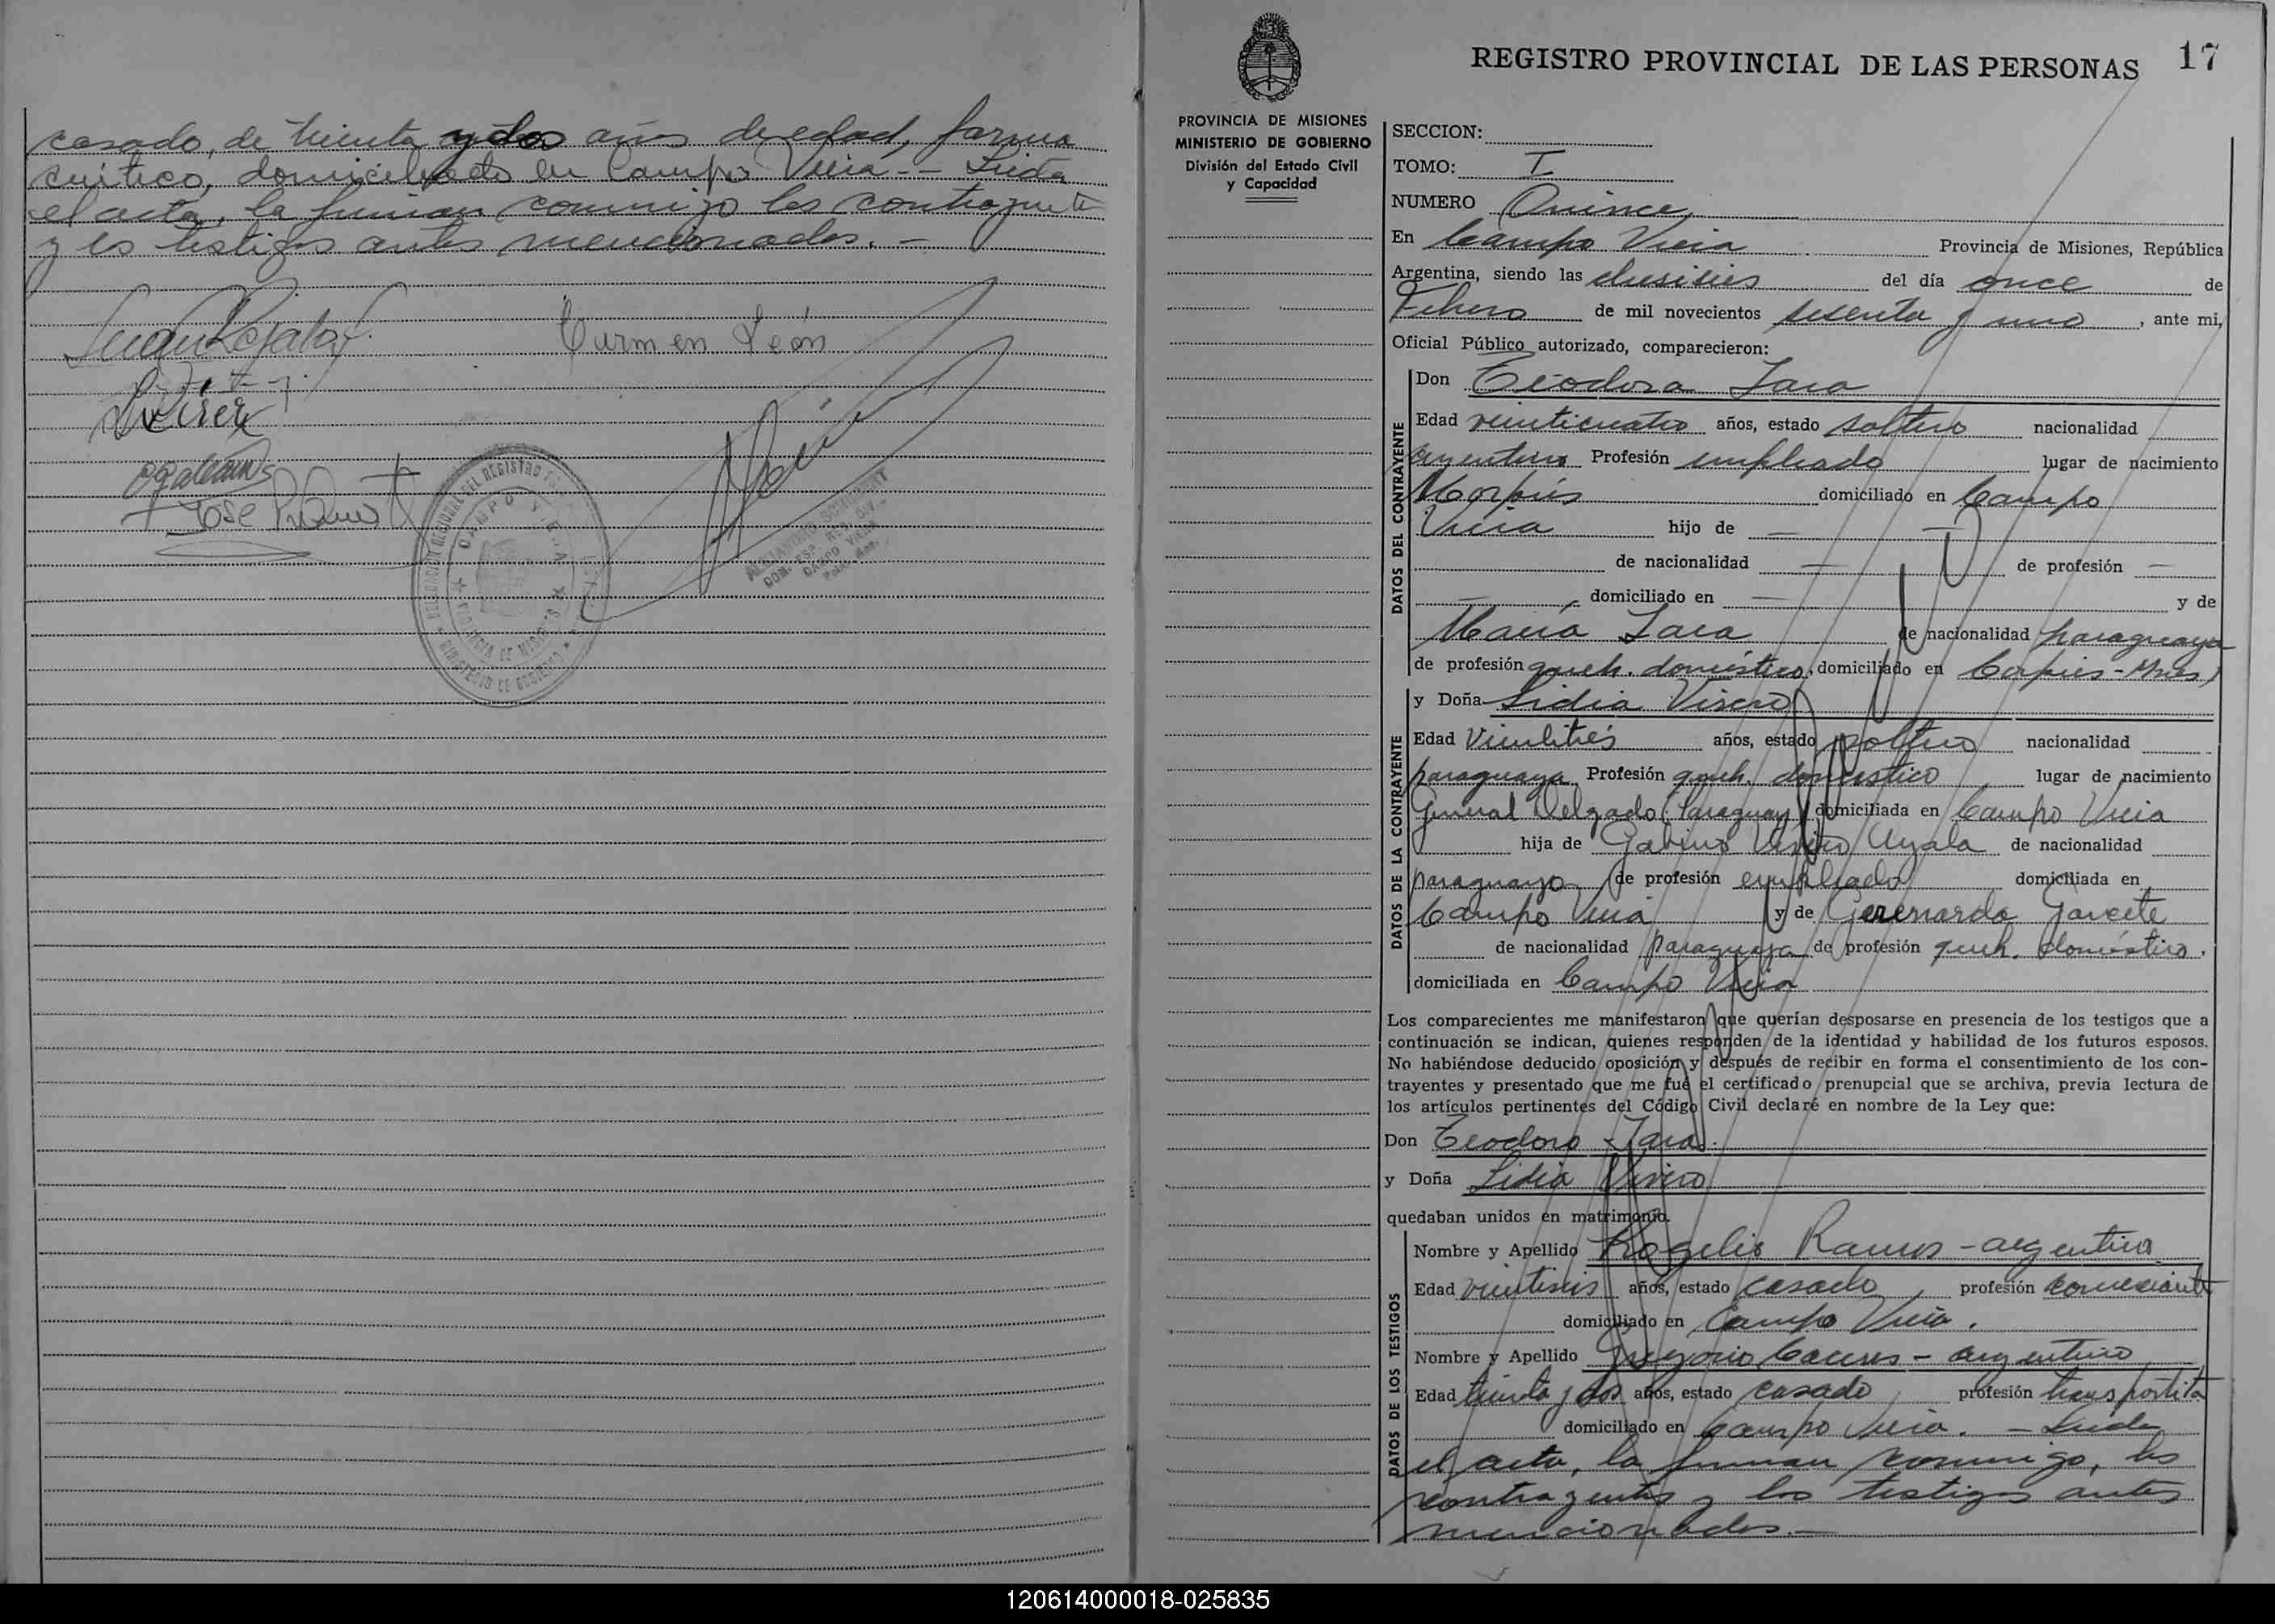 casado, de treinta y dos años de edad, farma
céutico, domiciliado en Campo Viera. - Leida
el acta, la firman conmigo los contrayente
y los testigos antes mencionados. -
Carmen León
CAMPO VIERA
PROVINCIA DE MISIONES
MINISTERIO DE GOBIERNO
REGISTRO PROVINCIAL DE LAS PERSONAS 17
PROVINCIA DE MISIONES
MINISTERIO DE GOBIERNO
División del Estado Civil
y Capacidad
SECCION:
TOMO: I
NUMERO Quince
En Campo Viera Provincia de Misiones, República
Argentina, siendo las dieciseis del día once de
Febrero de mil novecientos sesenta y uno, ante mi,
Oficial Público autorizado, comparecieron:
DATOS DEL CONTRAYENTE
Don Teodoro Jara
Edad veinticuatro años, estado soltero nacionalidad
argentina Profesión empleado lugar de nacimiento
Corpus domiciliado en Campo
Viera hijo de —
de nacionalidad — de profesión —
— domiciliado en — y de
María Jara de nacionalidad paraguaya
de profesión queh. doméstico, domiciliado en Corpus - Mnes)
DATOS DE LA CONTRAYENTE
y Doña Lidia Vivero
Edad Veintitrés años, estado soltera nacionalidad
paraguaya Profesión queh. doméstico lugar de nacimiento
General Delgado (Paraguay) domiciliada en Campo Viera
hija de Gabino Vivero Ayala de nacionalidad
paraguayo de profesión empleado domiciliada en
Campo Viera y de Gerenarda Gavete
de nacionalidad paraguaya de profesión queh. doméstico.
domiciliada en Campo Viera
Los comparecientes me manifestaron que querían desposarse en presencia de los testigos que a
continuación se indican, quienes responden de la identidad y habilidad de los futuros esposos.
No habiéndose deducido oposición y después de recibir en forma el consentimiento de los con-
trayentes y presentado que me fué el certificado prenupcial que se archiva, previa lectura de
los artículos pertinentes del Código Civil declaré en nombre de la Ley que:
Don Teodoro Jara.
y Doña Lidia Vivero
quedaban unidos en matrimonio.
DATOS DE LOS TESTIGOS
Nombre y Apellido Rogelio Ramos - argentino
Edad veintiseis años, estado casado profesión comerciante
domiciliado en Campo Viera.
Nombre y Apellido Gregorio Caceres - argentino
Edad treinta y dos años, estado casado profesión transportista
domiciliado en Campo Viera. - Leida
el acta, la firman conmigo, los
contrayentes y los testigos antes
mencionados. -
120614000018-025835